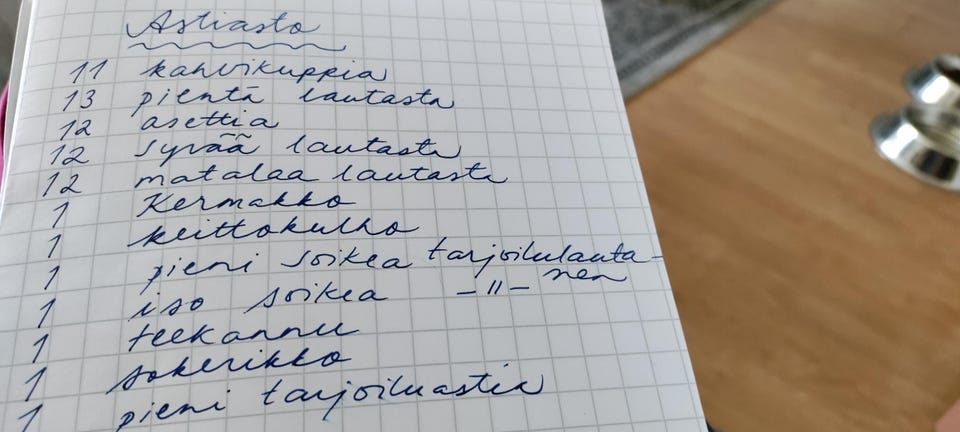 Astiasto
11 kahvikuppia
13 pientä lautasta
12 asettia
12 syvää lautasta
12 matalaa lautasta
1 Kermakko
1 keittokulho
1 pieni soikea tarjoilulauta-
nen
1 iso soikea -"-
1 teekannu
1 sokerikko
1 pieni tarjoiluastia